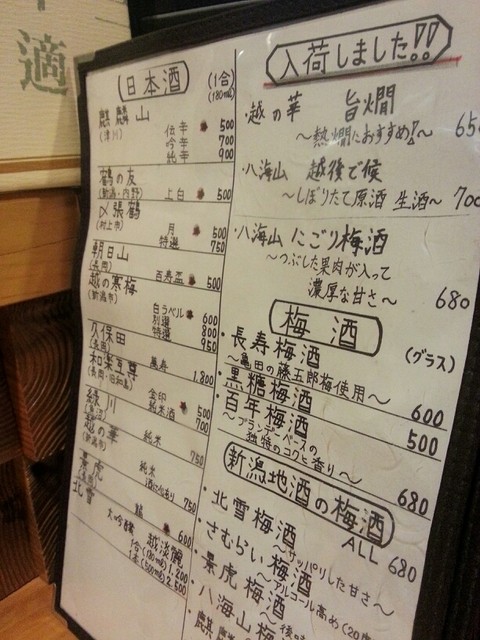 適
日本酒 (1合)
(180ml)
麒麟山
(津川)
伝辛 500
吟辛 700
純辛 900
鶴の友
(新潟・内野) 上白 500
〆張鶴
(村上市) 月 500
特選 750
朝日山
(長岡) 百寿盃 500
越の寒梅
(新潟市) 白ラベル 600
別選 800
特選 950
久保田
(長岡) 萬寿 1,800
和楽互尊
(長岡・旧和島) 金印 500
純米酒 700
緑川
純米 750
越の華
(新潟市) 純米 750
景虎
750
北雪 600
大吟醸 越淡麗
1合(180ml) 1,200
1本(500ml) 2,500
入荷しました!!
・越の華 旨燗 650
〜熱燗におすすめ!〜
・八海山 越後で候
〜しぼりたて原酒 生酒〜 700
・八海山 にごり梅酒
〜つぶした果肉が入って
濃厚な甘さ〜 680
梅酒 (グラス)
・長寿梅酒
〜亀田の藤五郎梅使用〜 600
・黒糖梅酒 500
・百年梅酒
〜ブランデーベースの
独特のコクと香り〜 680
新潟地酒の梅酒
ALL 680
・北雪梅酒
〜サッパリした甘さ〜
・さむらい梅酒
〜アルコール高め(20
・景虎梅酒
・八海山梅